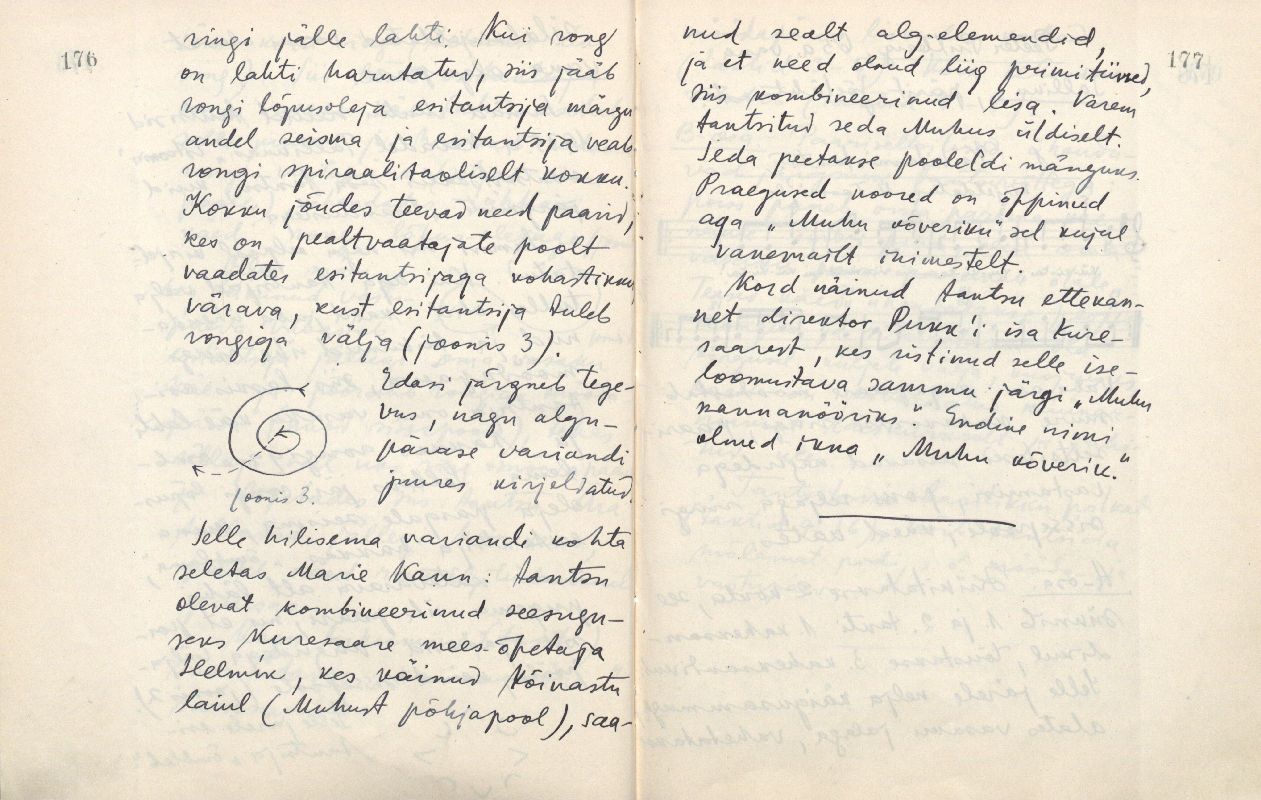 176
ringi jälle lahti. Kui rong
on lahti harutatud, siis jääb
rongi lõpusoleja esitantsija märgu
andel seisma ja esitantsija veab
rongi spiraalitaoliselt kokku.
Kokku jõudes teevad need paarid,
kes on pealtvaatajate poolt
vaadates esitantsijaga kohastikku
värava, kust esitantsija tuleb
rongiga välja (joonis 3).
Edasi järgneb tege-
vus, nagu algu-
pärase variandi
juures kirjeldatud.
joonis 3.
Selle hilisema variandi kohta
seletas Marie Kann: tantsu
olevat kombineerinud seesugu-
seks Kuresaare mees-õpetaja
Helmik, kes käinud Kõivastu
laiul (Muhust põhjapool), saa-
177
nud sealt alg-elemendid,
ja et need olnud liig primitiivsed,
siis kombineerinud lisa. Varem
tantsitud seda Muhus üldiselt.
Seda peetakse pooleldi mänguks.
Praegused noored on õppinud
aga „Muhu kõveriku" sel kujul
vanemailt inimestelt.
Kord näinud tantsu ettekan-
net direktor Pukk'i isa Kure-
saarest, kes ristinud selle ise-
loomustava sammu järgi „Muhu
kannanööriks". Endine nimi
olnud ikka „Muhu kõverik."